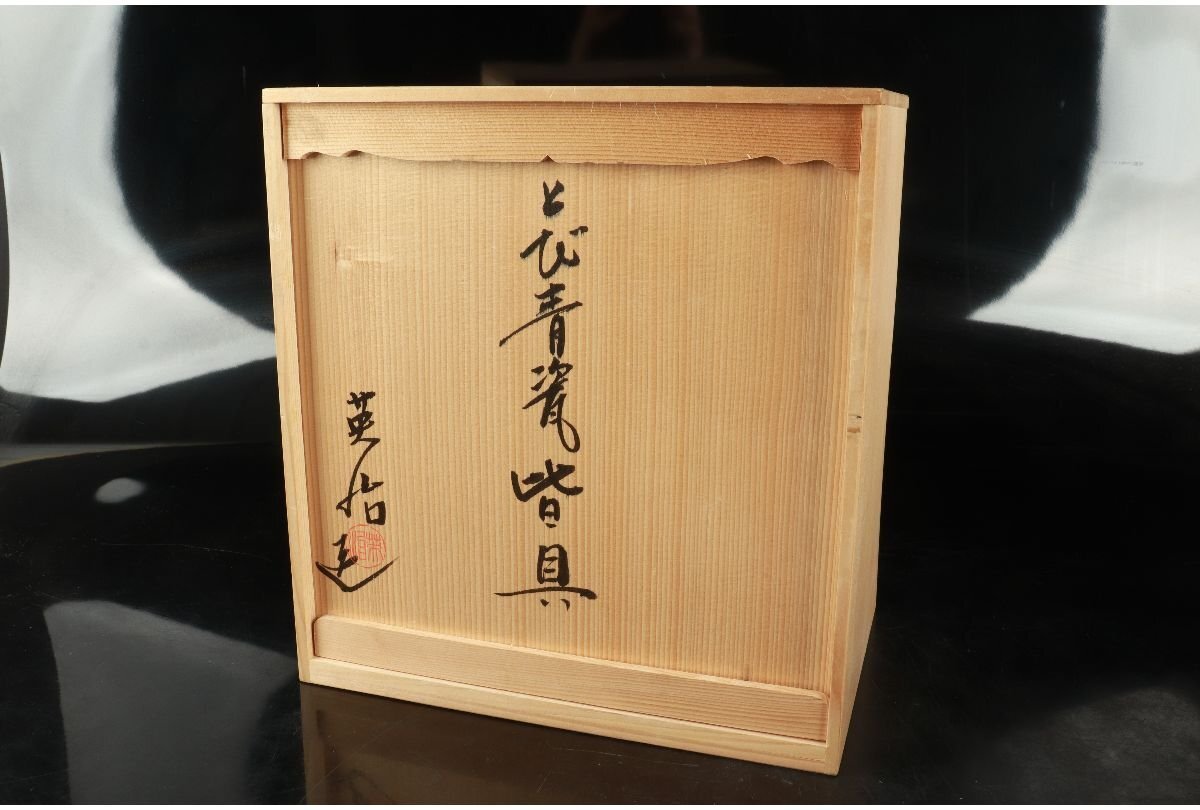 とび青瓷皆具
英治造